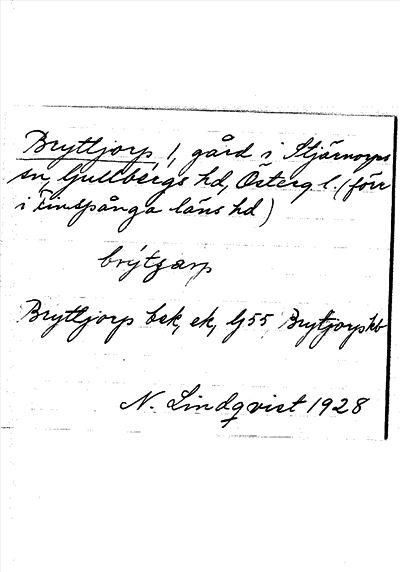 Bryttjorp 1, gård i Stjärnorps
sn, Gullbergs hd, Österg l. (förr
i Finspånga läns hd)
brýtjarp
Bryttjorp bsk, ek, G 55, Bryttjorp hb
N. Lindqvist 1928